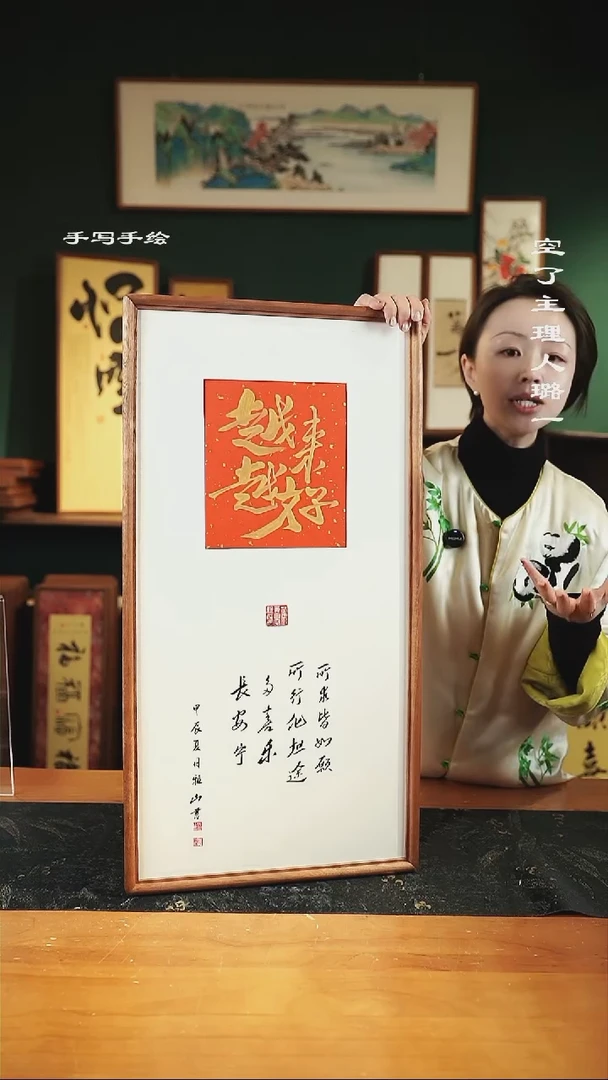 手写手绘
空了主理人璐一
越来
越好
所求皆如愿
所行化坦途
多喜乐
長安宁
甲辰夏月
山書
福